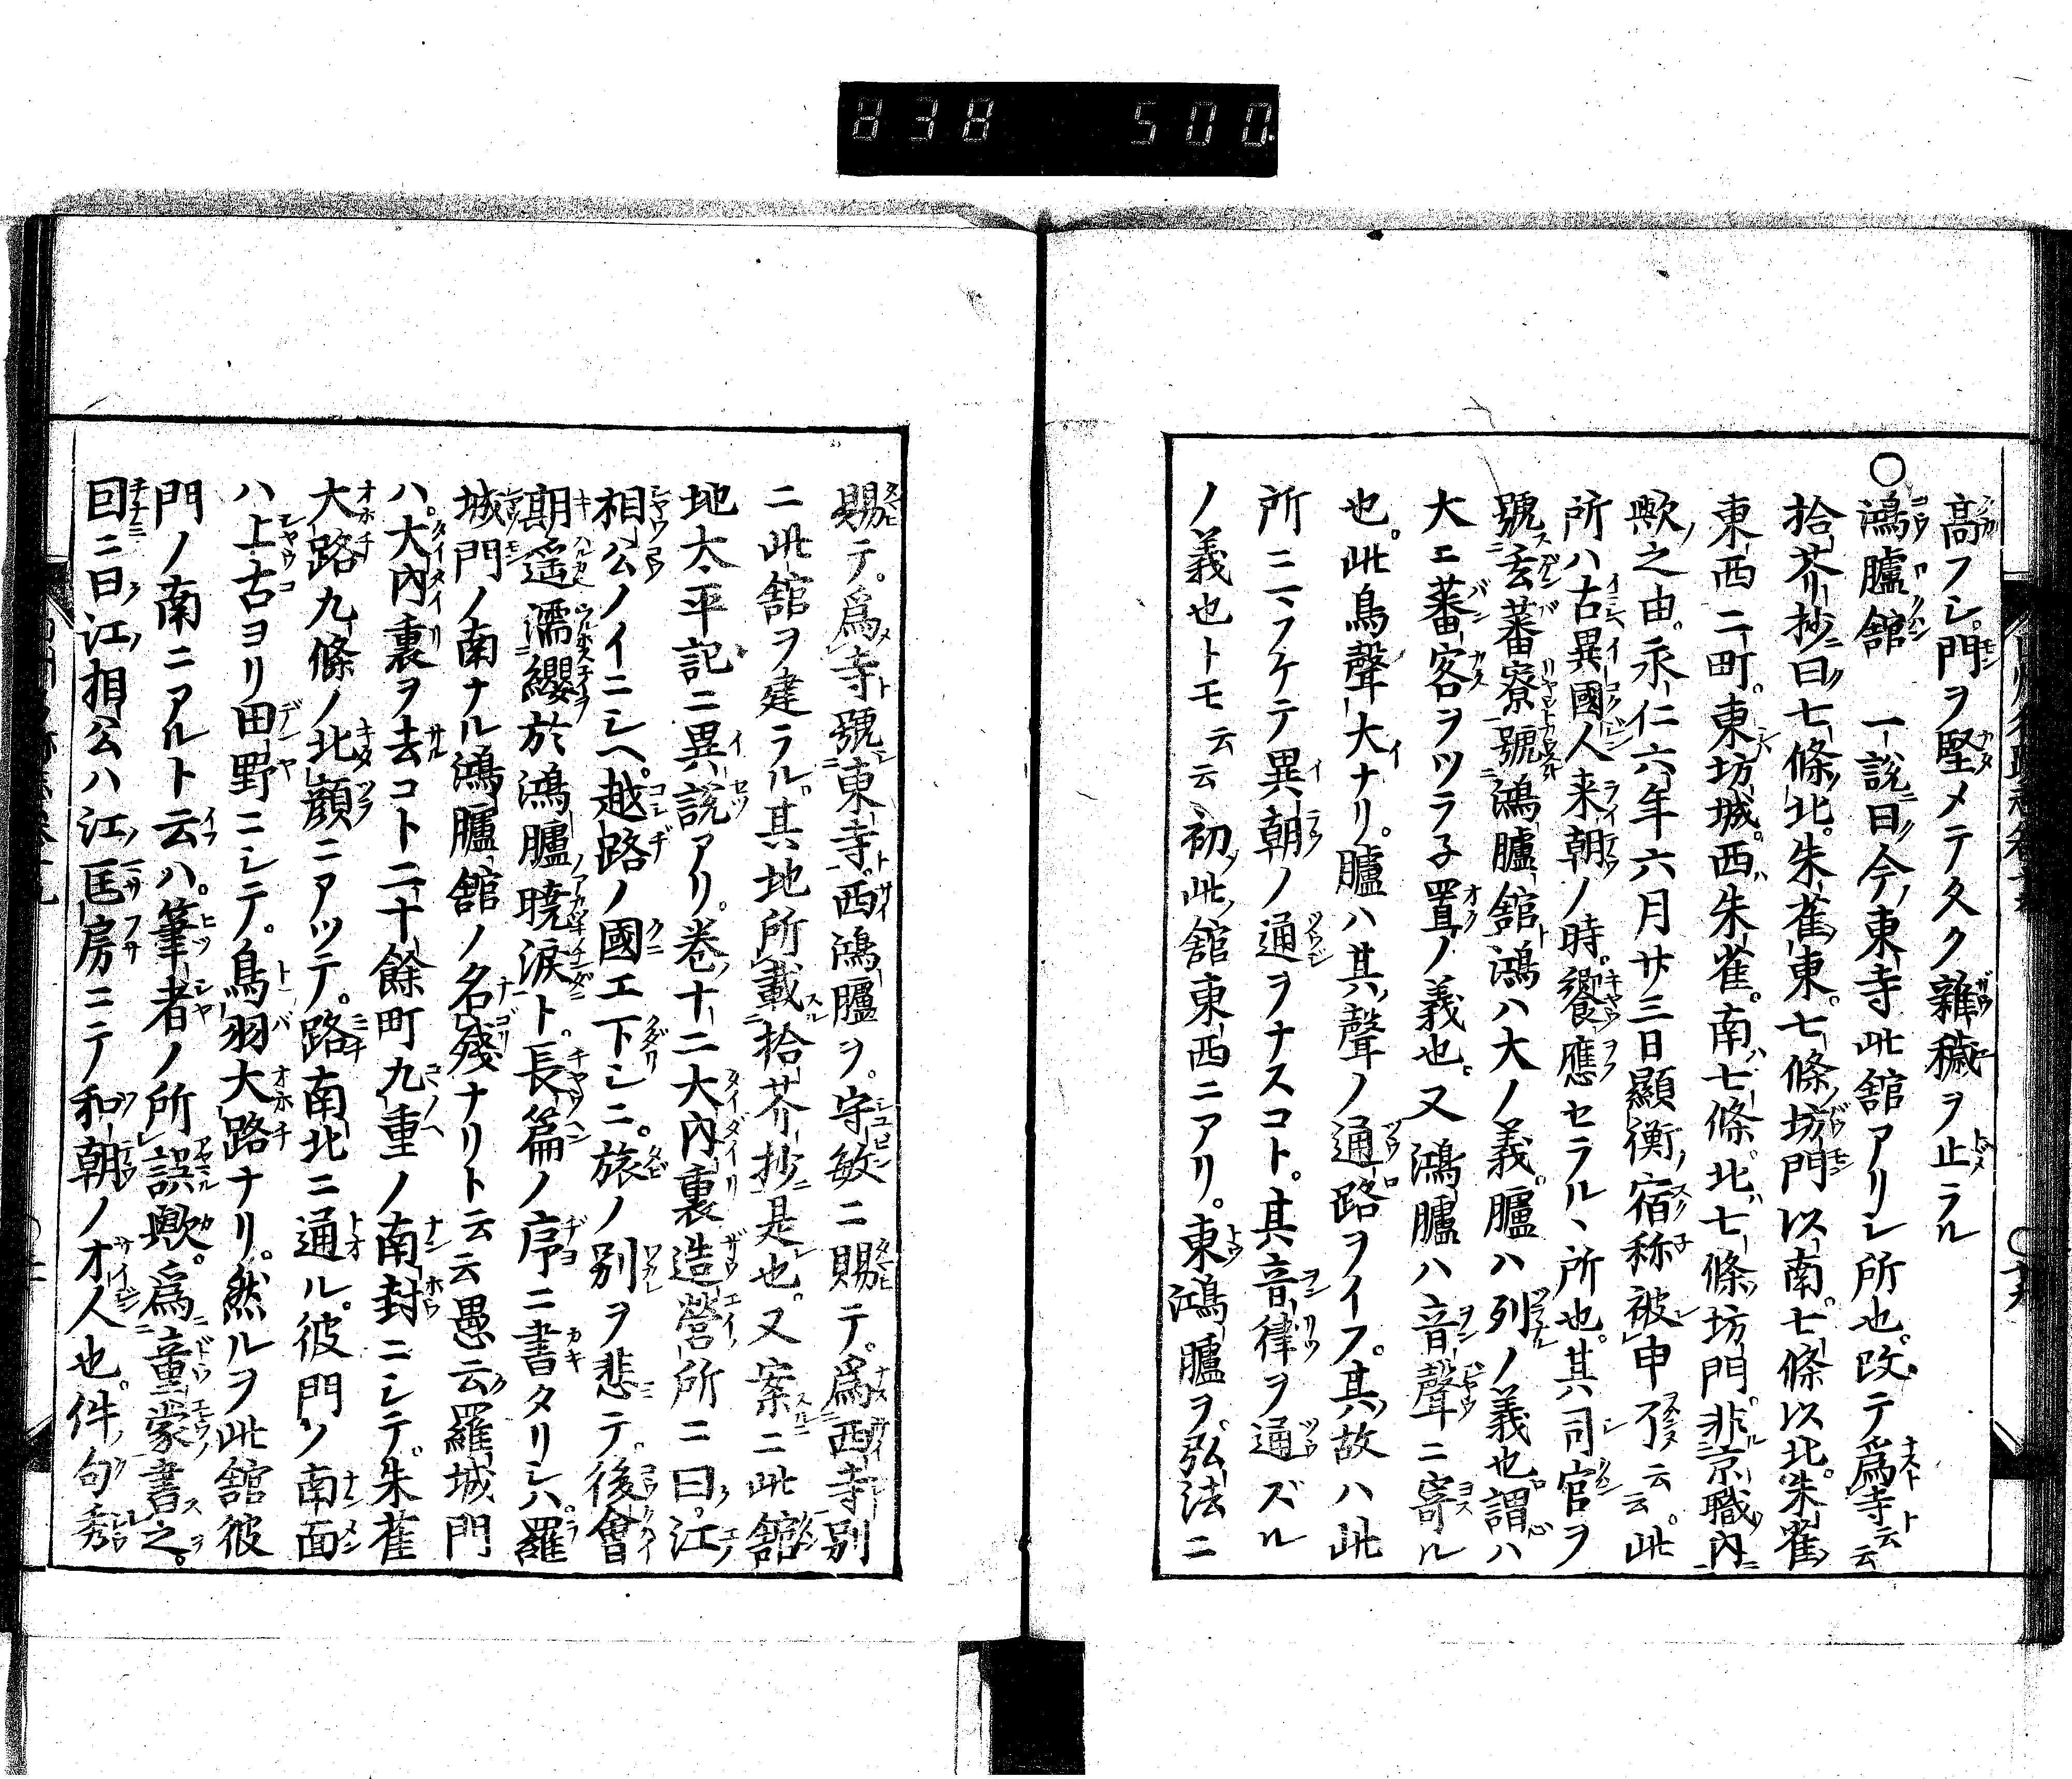 838 500.
高フシ門ヲ堅メテ久ク雜穢ヲ止ラル
○鴻臚舘 一說曰今東寺此舘アリシ所也。改テ爲寺云云
拾芥抄曰七條北。朱雀東。七條坊門以南。七條以北。朱雀
東西二町。東坊城。西朱雀。南七條。北七條坊門。非京職内
歟之由。永仁六年六月廿三日顯衡宿称被申了云云。此
所ハ古異國人来朝ノ時。饗應セラルヽ所也。其司官ヲ
號玄蕃寮號鴻臚舘鴻ハ大ノ義。臚ハ列ノ義也謂ハ
大ニ蕃客ヲツラ子置ノ義也。又鴻臚ハ音聲ニ寄ル
也。此鳥聲大ナリ。臚ハ其聲ノ通路ヲイフ。其故ハ此
所ニ二フケテ異朝ノ通ヲナスコト。其音律ヲ通ズル
ノ義也トモ云云初此舘東西ニアリ。東鴻臚ヲ弘法ニ
賜テ。爲寺號東寺。西鴻臚ヲ。守敏ニ賜テ。爲西寺別
ニ此舘ヲ建ラル。其地所載拾芥抄是也。又案ニ此舘
地太平記ニ異說アリ。卷十二大内裏造營所ニ曰。江
相公ノイニシヘ越路ノ國エ下シニ。旅ノ別ヲ悲テ。後會
期遥濡纓於鴻臚曉淚ト。長篇ノ序ニ書タリシハ羅
城門ノ南ナル鴻臚舘ノ名殘ナリト云云愚云羅城門
ハ。大内裏ヲ去コト二十餘町九重ノ南封ニシテ。朱雀
大路九條ノ北顔ニアツテ。路南北ニ通ル。彼門ソ南面
ハ上古ヨリ田野ニシテ。鳥羽大路ナリ。然ルヲ此舘彼
門ノ南ニアルト云ハ。筆者ノ所誤歟。爲童蒙書之。
因ニ曰江相公ハ江匡房ニテ和朝ノオ人也。件句秀